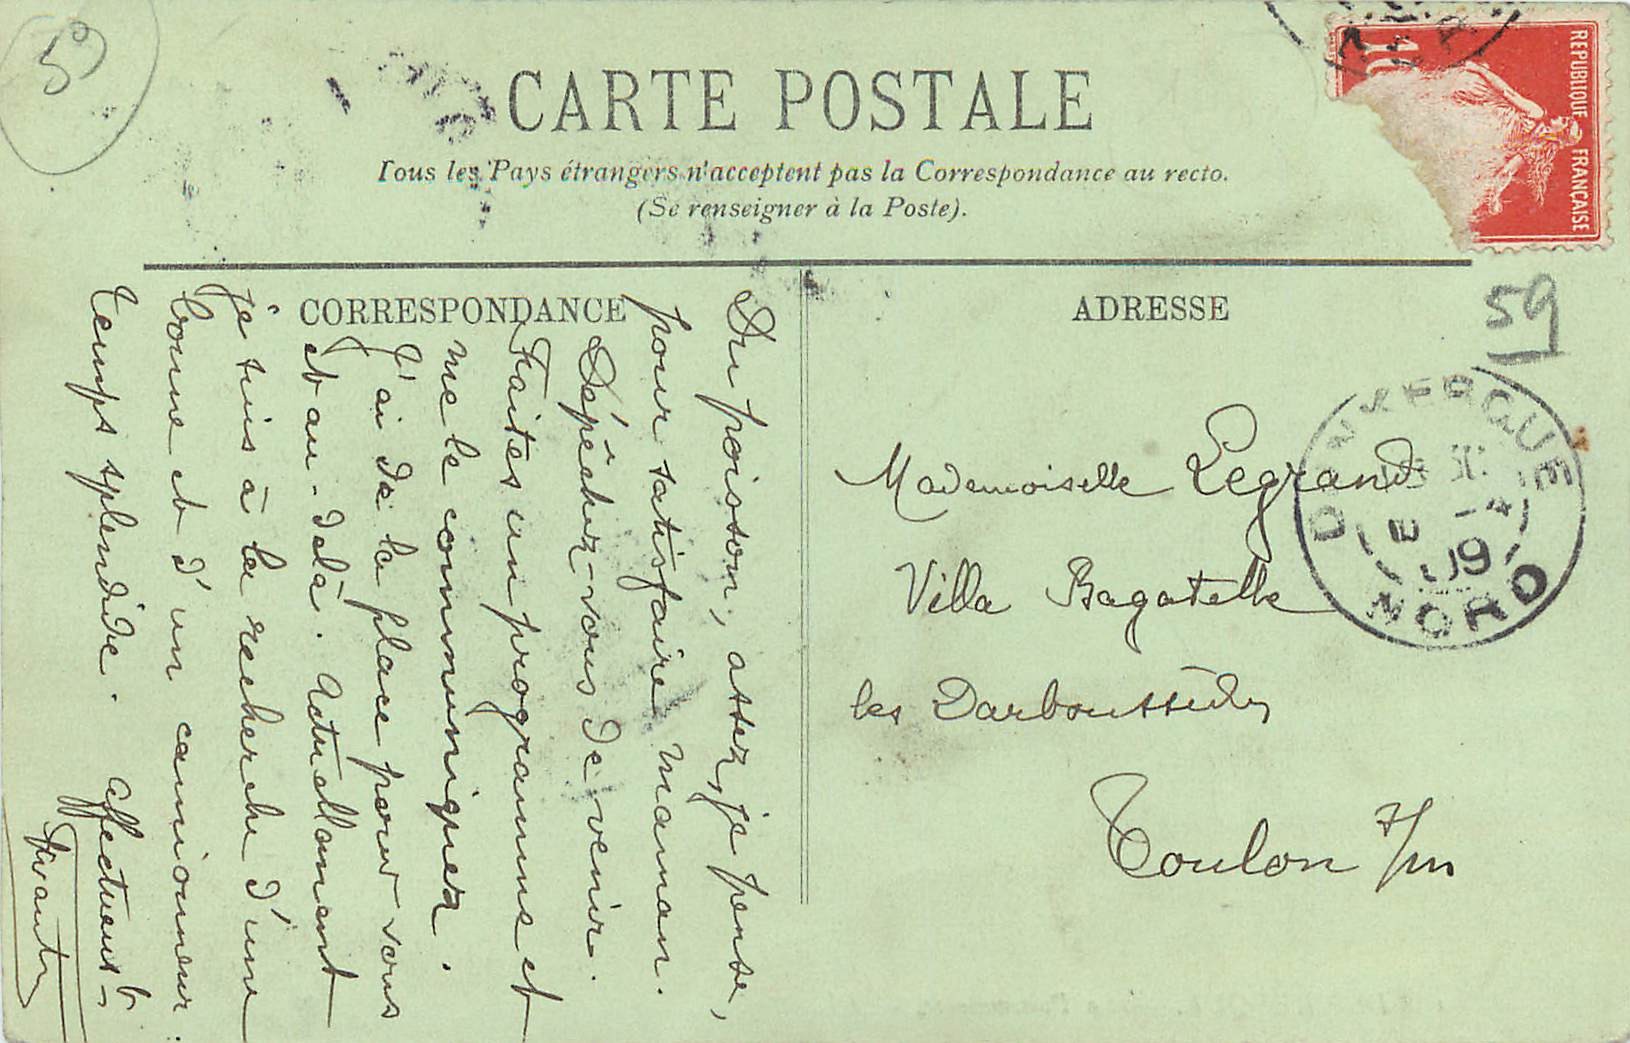 59
CARTE POSTALE
Tous les Pays étrangers n'acceptent pas la Correspondance au recto.
(Se renseigner à la Poste).
REPUBLIQUE FRANÇAISE
10
CORRESPONDANCE
Du poisson, assez, je pense,
pour satisfaire maman.
Dépêchez-vous de venir.
Faites un programme et
me le communiquez.
J'ai de la place pour vous
et au-delà. Actuellement
je suis à la recherche d'une
bonne et d'un camionneur.
Temps splendide. Affectueus.t
ADRESSE
59
DUNKERQUE
-4
09
NORD
Mademoiselle Legrand
Villa Bagatelle
les Darboussèdes
Toulon s/m